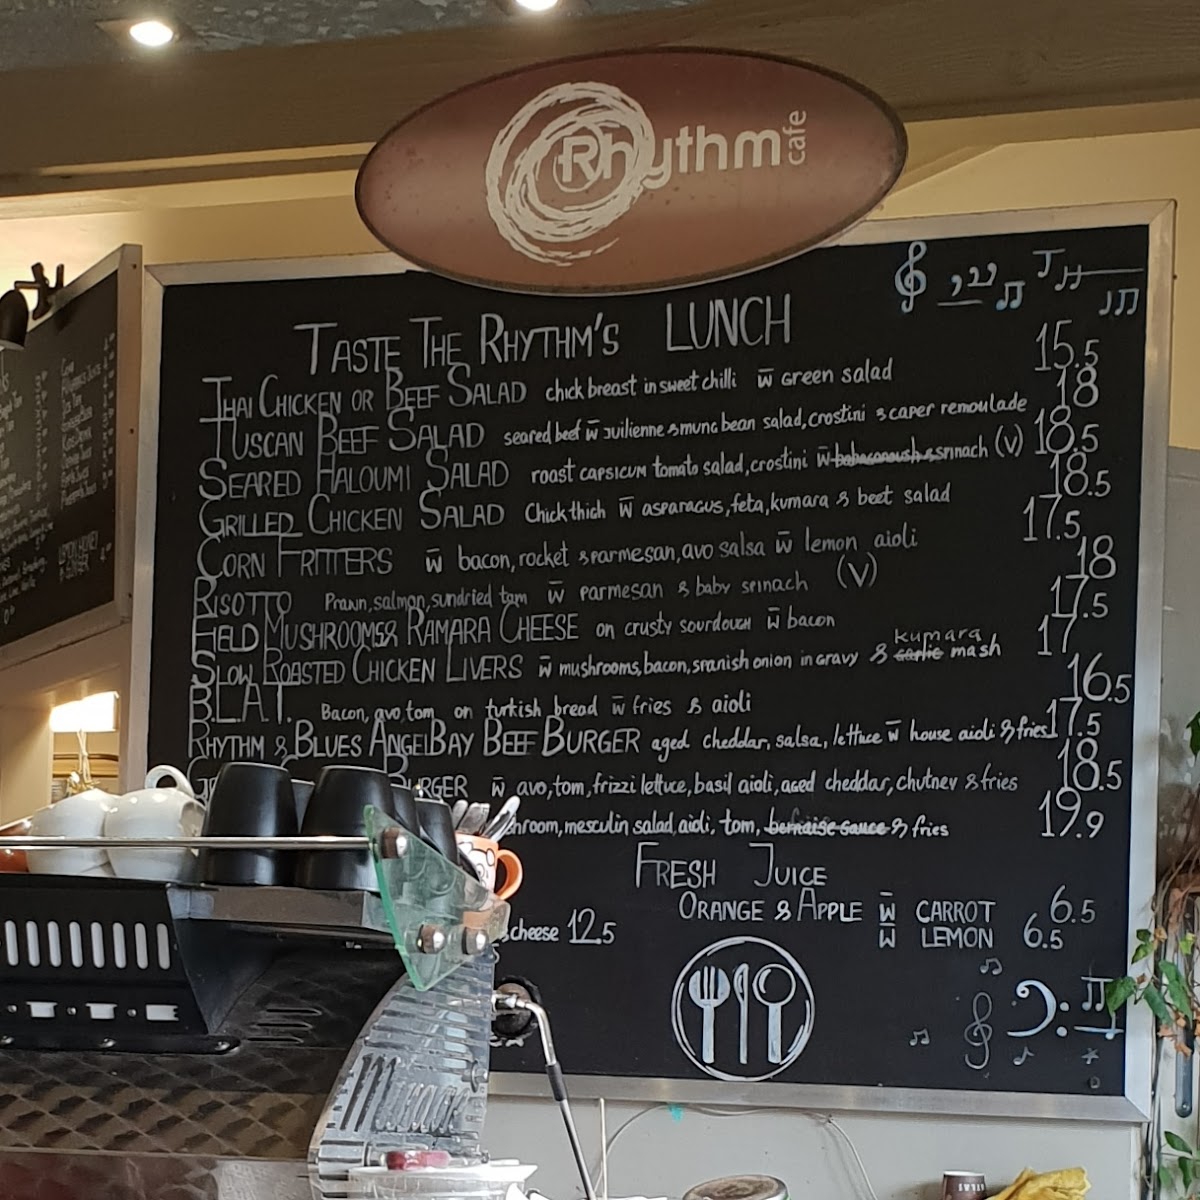 Rhythm cafe
TASTE THE RHYTHM'S LUNCH
THAI CHICKEN OR BEEF SALAD chick breast in sweet chilli w̄ green salad 15.5
TUSCAN BEEF SALAD seared beef w̄ juilienne & mung bean salad, crostini & caper remoulade 18
SEARED HALOUMI SALAD roast capsicum tomato salad, crostini w̄ babaganoush & spinach (V) 18.5
GRILLED CHICKEN SALAD Chick thich w̄ asparagus, feta, kumara & beet salad 18.5
CORN FRITTERS w̄ bacon, rocket & parmesan, avo salsa w̄ lemon aioli 17.5
RISOTTO Prawn, salmon, sundried tom w̄ parmesan & baby spinach (V) 18
FIELD MUSHROOMS & RAMARA CHEESE on crusty sourdough w̄ bacon 17.5
SLOW ROASTED CHICKEN LIVERS w̄ mushrooms, bacon, spanish onion in gravy & garlic kumara mash 17
B.L.A.T. Bacon, avo, tom on turkish bread w̄ fries & aioli 16.5
RHYTHM & BLUES ANGEL BAY BEEF BURGER aged cheddar, salsa, lettuce w̄ house aioli & fries 17.5
RGER w̄ avo, tom, frizzi lettuce, basil aioli, aged cheddar, chutney & fries 18.5
hroom, mesculin salad, aioli, tom, bernaise sauce & fries 19.9
FRESH JUICE
ORANGE & APPLE w̄ CARROT 6.5
w̄ LEMON 6.5
& cheese 12.5